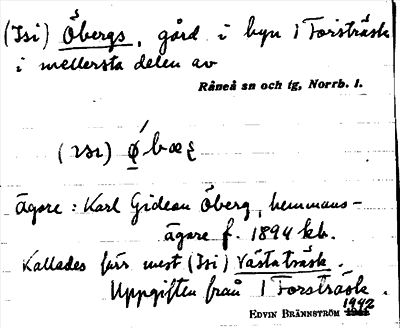 (Isi) Öbergs, gård i byn 1 Forsträsk
i mellersta delen av
Råneå sn och tg, Norrb. l.
ägare: Karl Gideon Öberg, hemmans-
ägare f. 1894 kb.
Kallades förr mest (Isi) Västaträsk.
Uppgiften från 1 Forsträsk.
EDVIN BRÄNNSTRÖM 1942